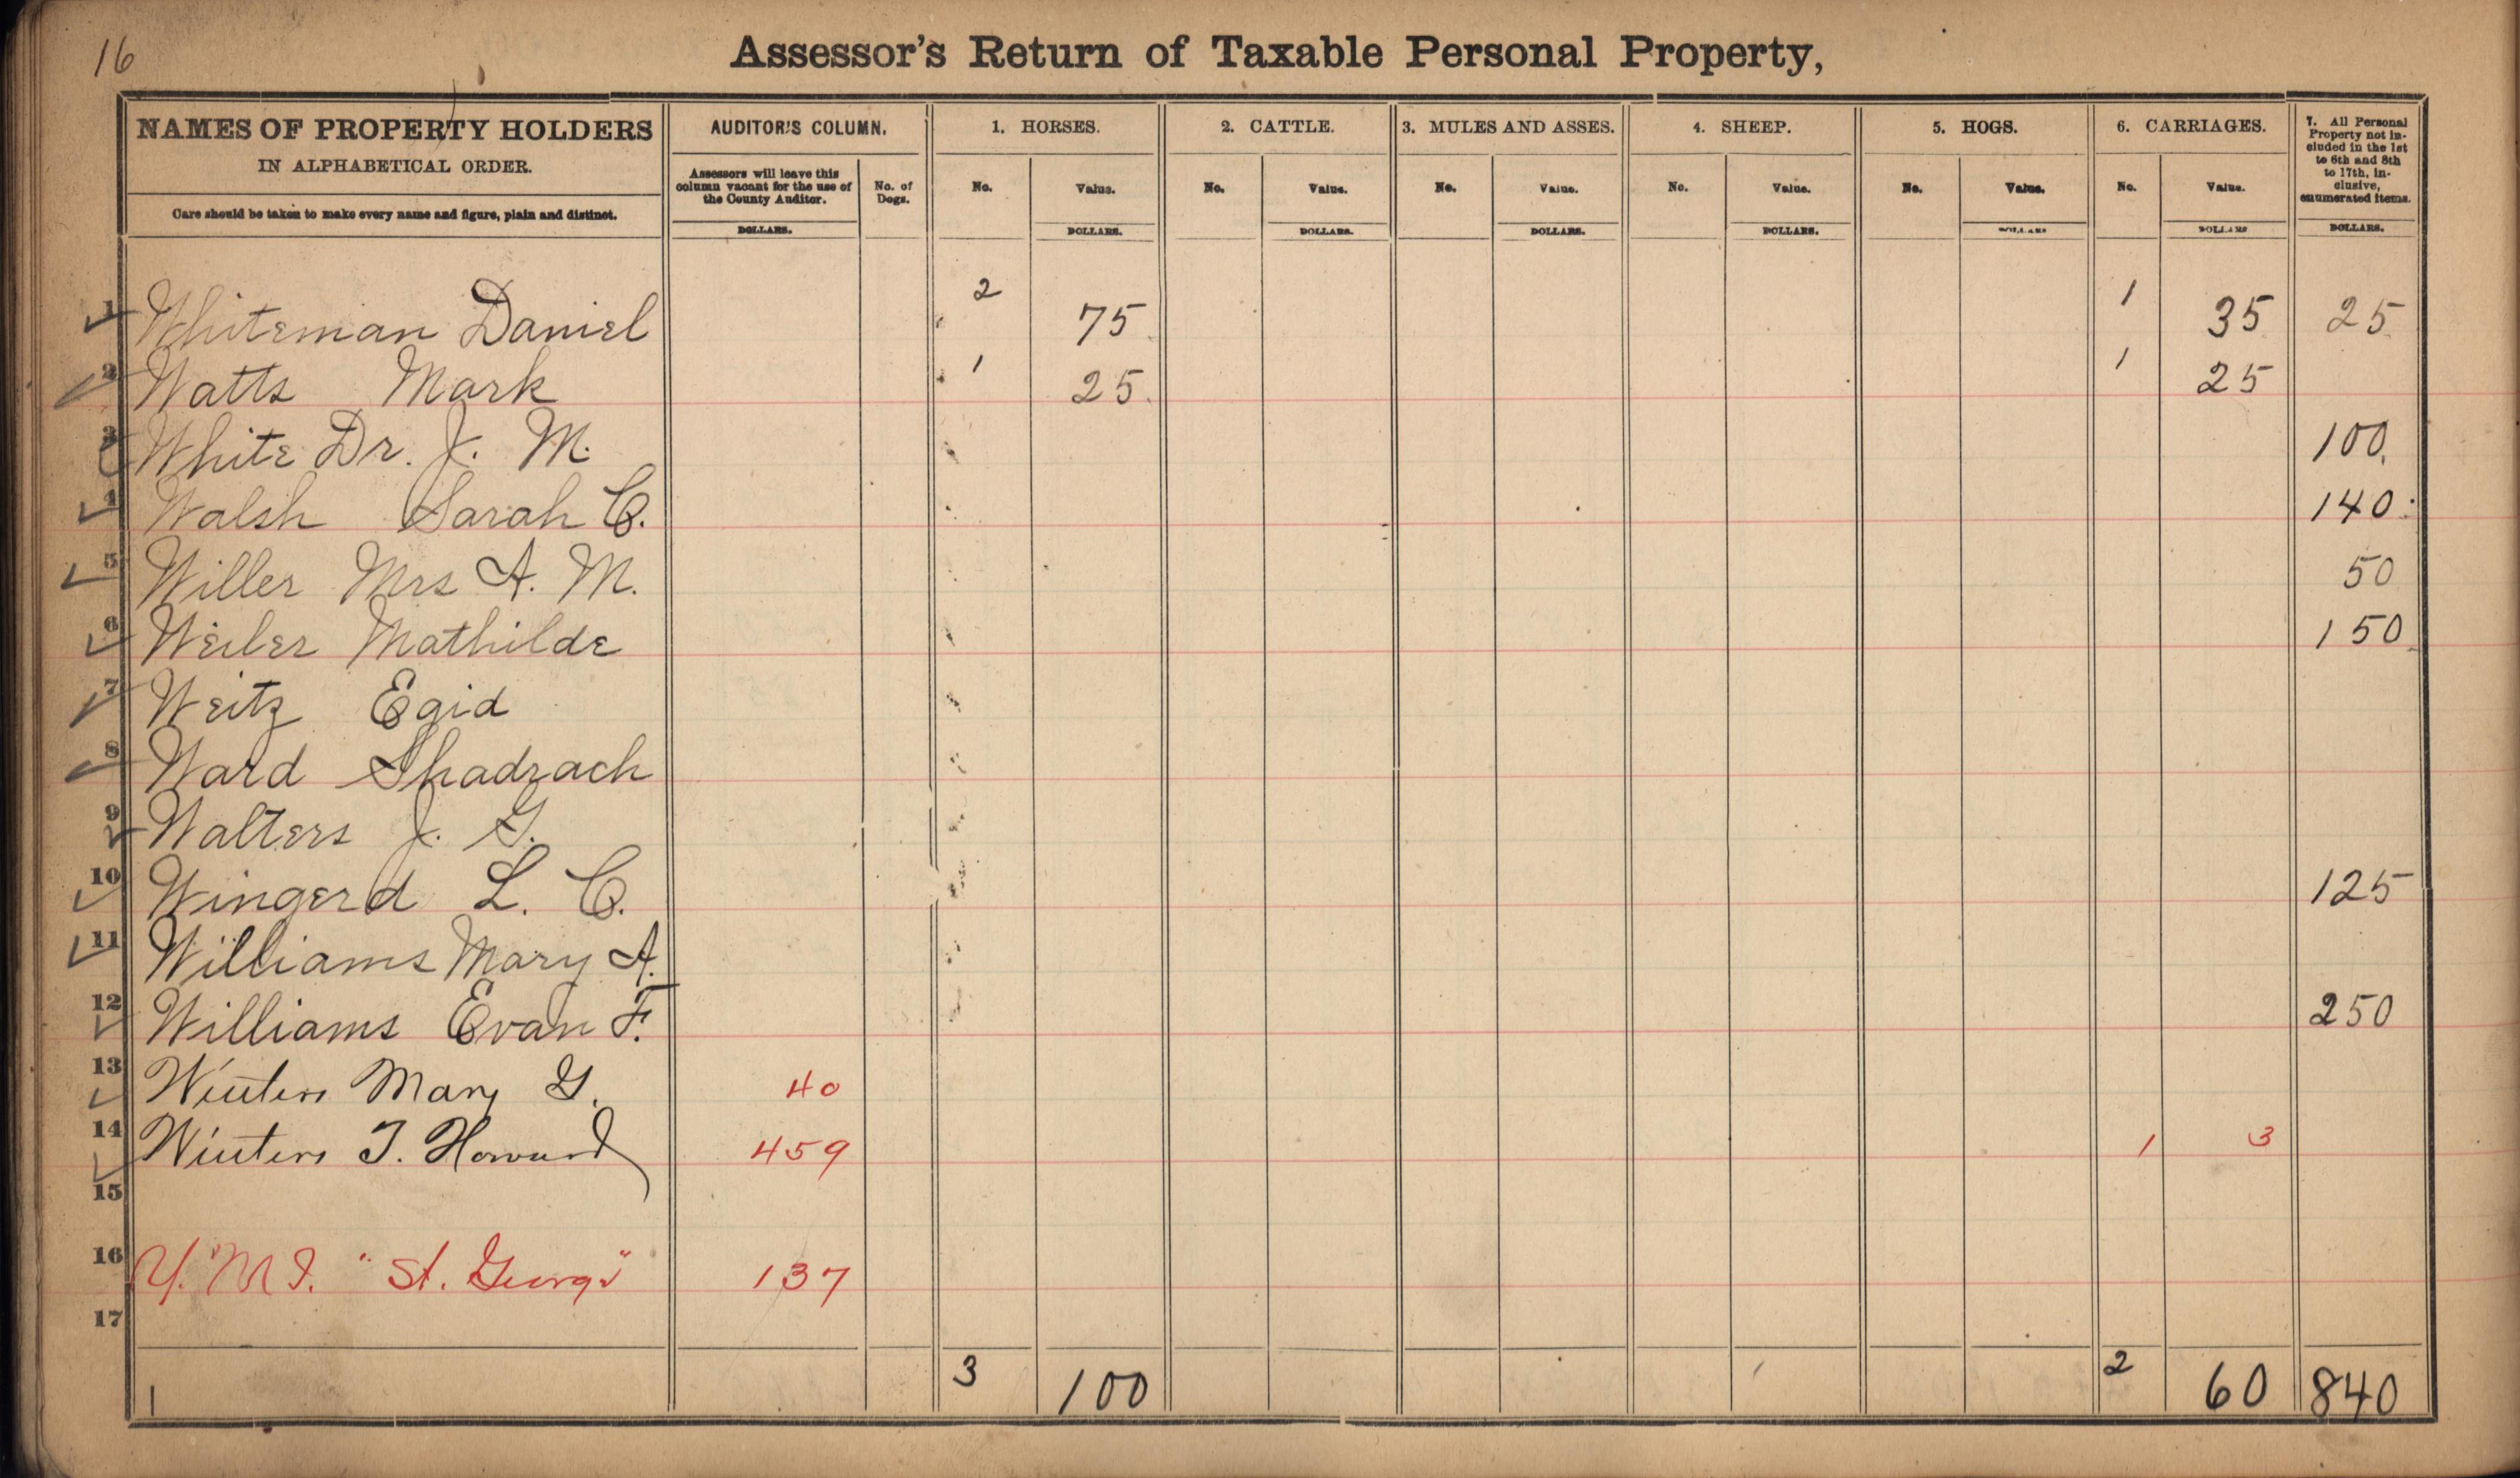 16
Assessor's Return of Taxable Personal Property,
NAMES OF PROPERTY HOLDERS
IN ALPHABETICAL ORDER.
Care should be taken to make every name and figure, plain and distinct.
AUDITOR'S COLUMN.
Assessors will leave this
column vacant for the use of
the County Auditor.
DOLLARS.
No. of
Dogs.
1. HORSES.
No. Value.
DOLLARS.
2. CATTLE.
No. Value.
DOLLARS.
3. MULES AND ASSES.
No. Value.
DOLLARS.
4. SHEEP.
No. Value.
DOLLARS.
5. HOGS.
No. Value.
DOLLARS
6. CARRIAGES.
No. Value.
DOLLARS
7. All Personal
Property not in-
cluded in the 1st
to 6th and 8th
to 17th, in-
clusive,
enumerated items.
DOLLARS.
1 Whiteman Daniel 2 75 1 35 25
2 Watts Mark 1 25 1 25
3 White Dr. J. M. 100
4 Walsh Sarah C. 140
5 Willer Mrs A. M. 50
6 Weiler Mathilde 150
7 Weitz Egid
8 Ward Shadrach
9 Walters J. G.
10 Wingerd L. C. 125
11 Williams Mary A.
12 Williams Evan F. 250
13 Winters Mary G. 40
14 Winters T. Howard 459 1 3
15
16 Y. M I. "St. George" 137
17
3 100 2 60 840